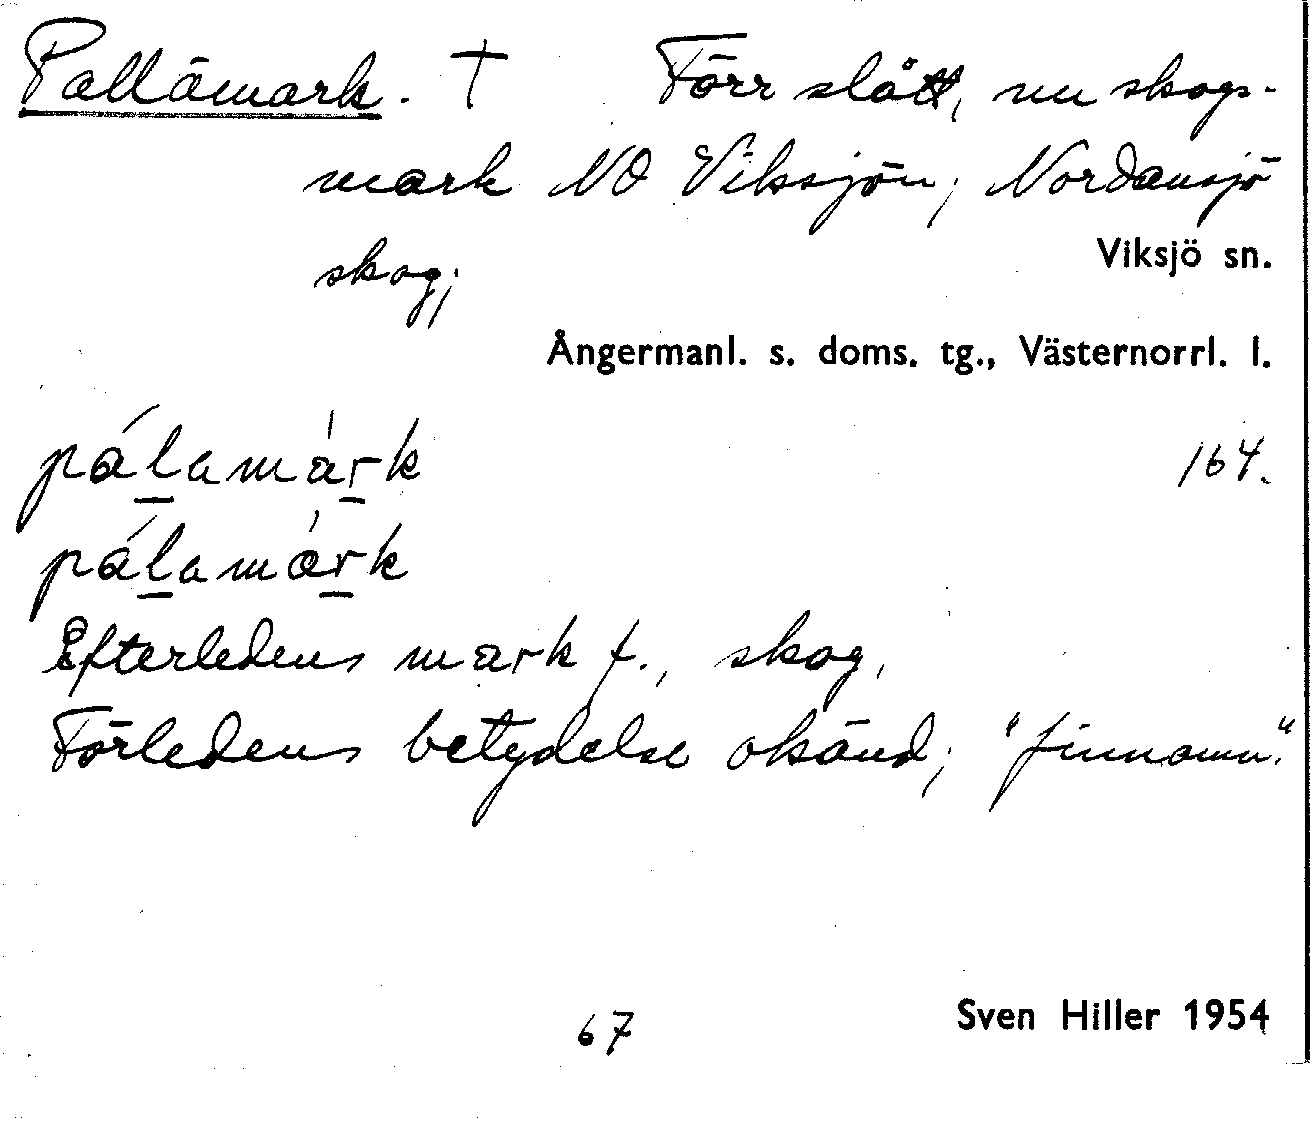 Pallämark. † Förr slått, nu skogs-
mark NO Viksjön; Nordansjö
skog;
Viksjö sn.
Ångermanl. s. doms. tg., Västernorrl. l.
pálamàrk
164.
pálamàrk
Efterledens mark f., skog,
Förledens betydelse okänd; "finnamn."
67
Sven Hiller 1954